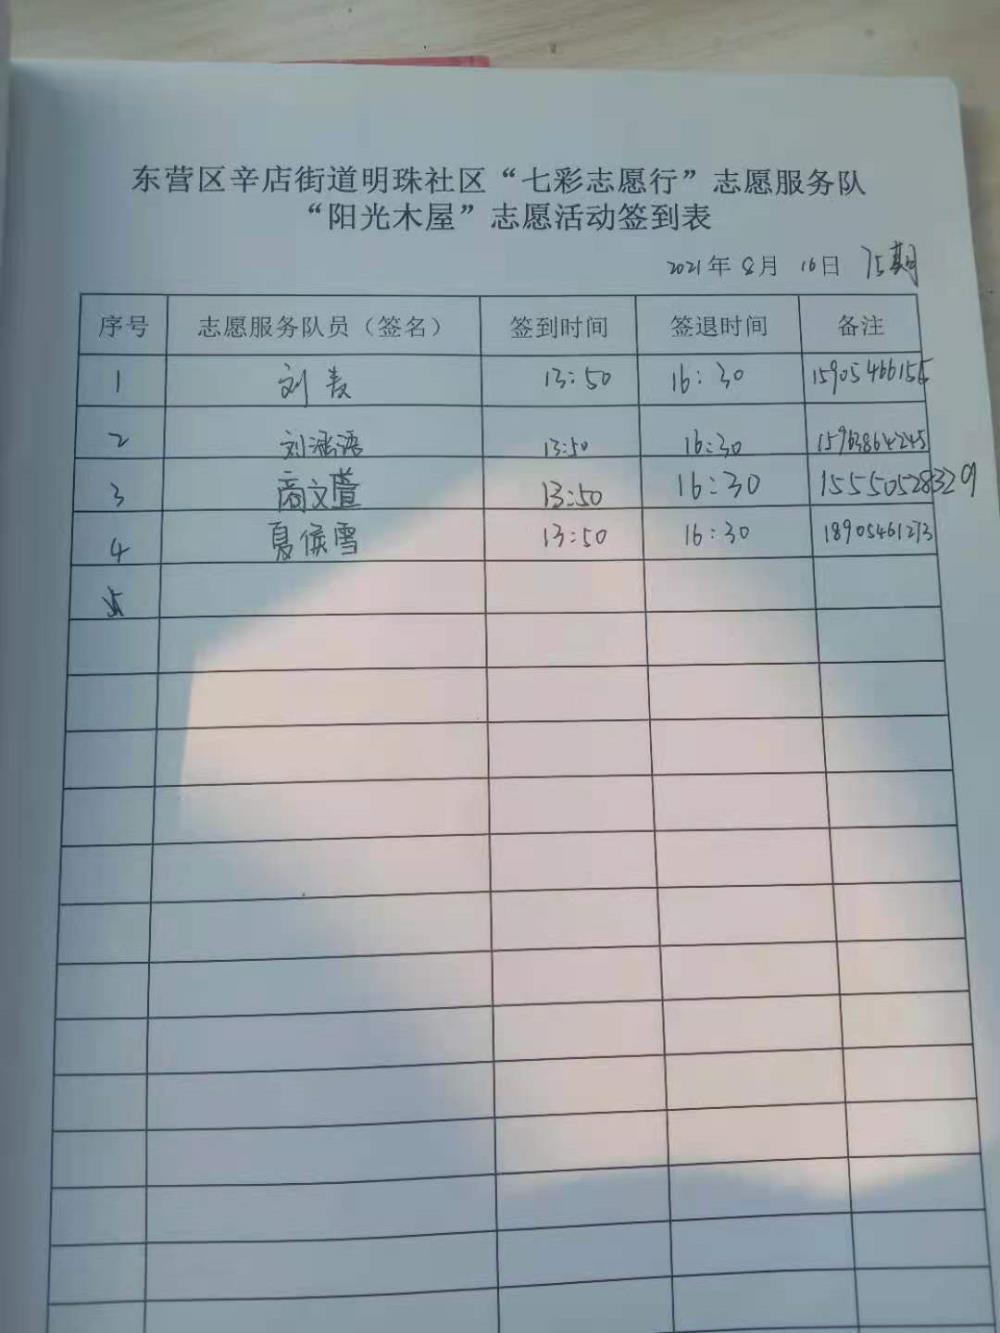 东营区辛店街道明珠社区“七彩志愿行”志愿服务队
“阳光木屋”志愿活动签到表
2021年 8月 16日 75期
序号 志愿服务队员（签名） 签到时间 签退时间 备注
1 刘 13:50 16:30 1590546615
2 刘涵语 13:50 16:30 15963864245
3 商文萱 13:50 16:30 15550528329
4 夏侯雪 13:50 16:30 18905461273
5